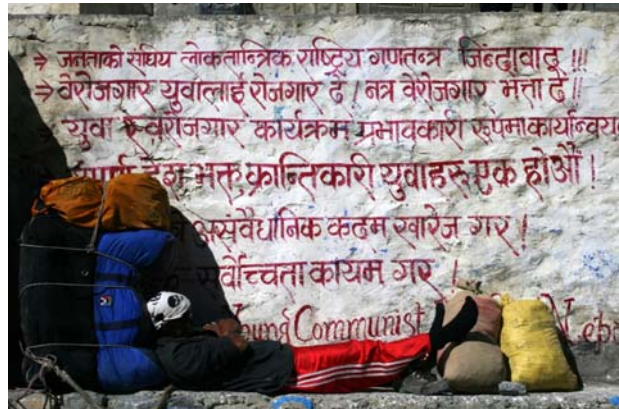 ⇒ जनताको संघिय लोकतान्त्रिक राष्ट्रिय गणतन्त्र जिन्दावाद !!!
⇒ वेरोजगार युवालाई रोजगार दे ! नत्र वेरोजगार भत्ता दे !!
⇒ युवा स्वरोजगार कार्यक्रम प्रभावकारी रुपमा कार्यान्वयन
देश भक्त क्रान्तिकारी युवाहरु एक होऔं !
असंवैधानिक कदम खारेज गर !
सर्वोच्चता कायम गर !
Young Communist Nepa